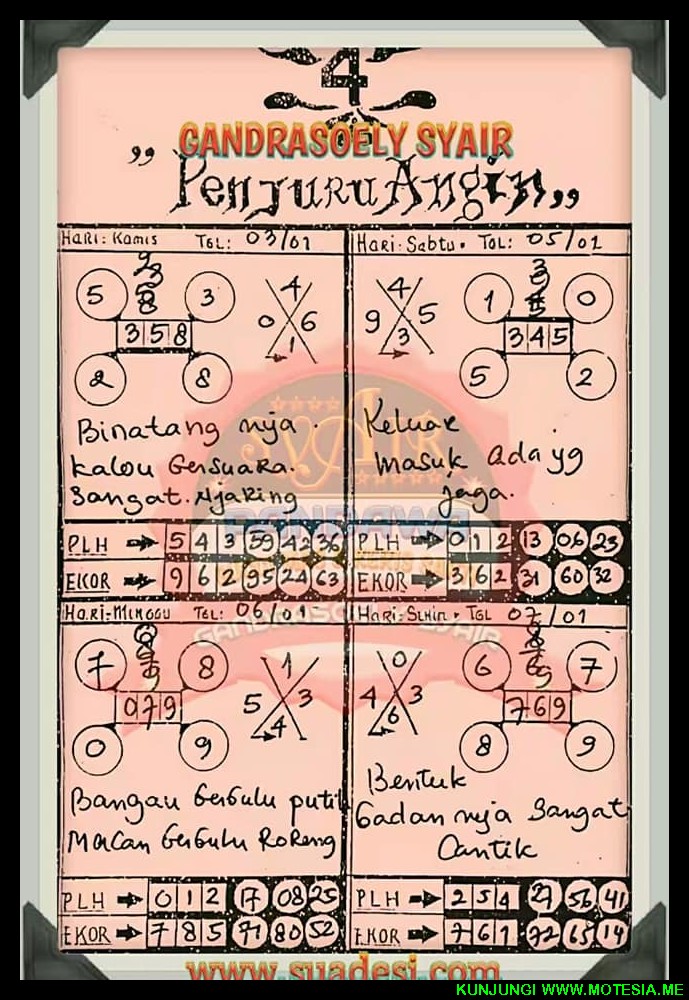 4
GANDRASOELY SYAIR
,, Penjuru Angin ,,
Hari: Kamis TGL: 03/01
5 3
3 5 8
2 8
4
0 6
1
Binatang nija.
kalou bersuara.
Sangat. Njaring
PLH 5 4 3 59 42 36
EKOR 9 6 2 95 24 63
Hari: Sabtu. TGL: 05/01
4
9 5
3
1 0
3 4 5
5 2
Keluar
masuk ada yg
jaga.
PLH 0 1 2 13 06 23
EKOR 3 6 2 31 60 32
Hari: Minggu TGL: 06/01
7 8
0 7 9
0 9
1
5 3
4
Bangau berbulu putih
Macan berbulu Roreng
PLH 0 1 2 17 08 25
EKOR 7 8 5 71 80 52
Hari: Senin. TGL 07/01
0
4 3
6
6 7
7 6 9
8 9
Bentuk
badan nija Sangat
Cantik
PLH 2 5 4 27 56 41
EKOR 7 6 1 72 65 14
www.suadesi.com
KUNJUNGI WWW.MOTESIA.ME